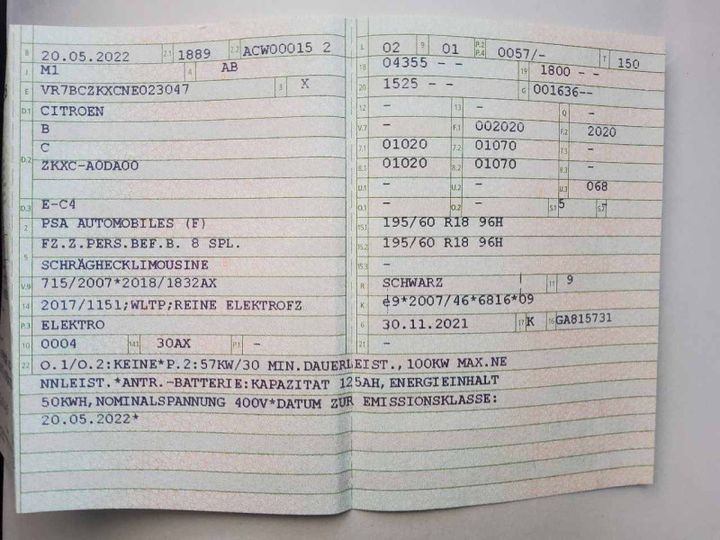 B 20.05.2022 2.1 1889 2.2 ACW00015 2
J M1 4 AB
E VR7BCZKXCNE023047 3 X
D.1 CITROEN
B
D.2 C
ZKXC-A0DA00
D.3 E-C4
2 PSA AUTOMOBILES (F)
5 FZ.Z.PERS.BEF.B. 8 SPL.
SCHRÄGHECKLIMOUSINE
V.9 715/2007*2018/1832AX
14 2017/1151;WLTP;REINE ELEKTROFZ
P.3 ELEKTRO
10 0004 14.1 30AX P.1 -
L 02 9 01 P.2 P.4 0057/- T 150
18 04355 - - 19 1800 - -
20 1525 - - G 001636--
12 - 13 - Q -
V.7 - F.1 002020 F.2 2020
7.1 01020 7.2 01070 7.3 -
8.1 01020 8.2 01070 8.3 -
U.1 - U.2 - U.3 068
O.1 - O.2 - S.1 5 S.2 -
15.1 195/60 R18 96H
15.2 195/60 R18 96H
15.3 -
R SCHWARZ 11 9
K e9*2007/46*6816*09
6 30.11.2021 17 K 16 GA815731
21 -
22 O.1/O.2:KEINE*P.2:57KW/30 MIN.DAUERLEIST.,100KW MAX.NE
NNLEIST.*ANTR.-BATTERIE:KAPAZITAT 125AH,ENERGIEINHALT
50KWH,NOMINALSPANNUNG 400V*DATUM ZUR EMISSIONSKLASSE:
20.05.2022*